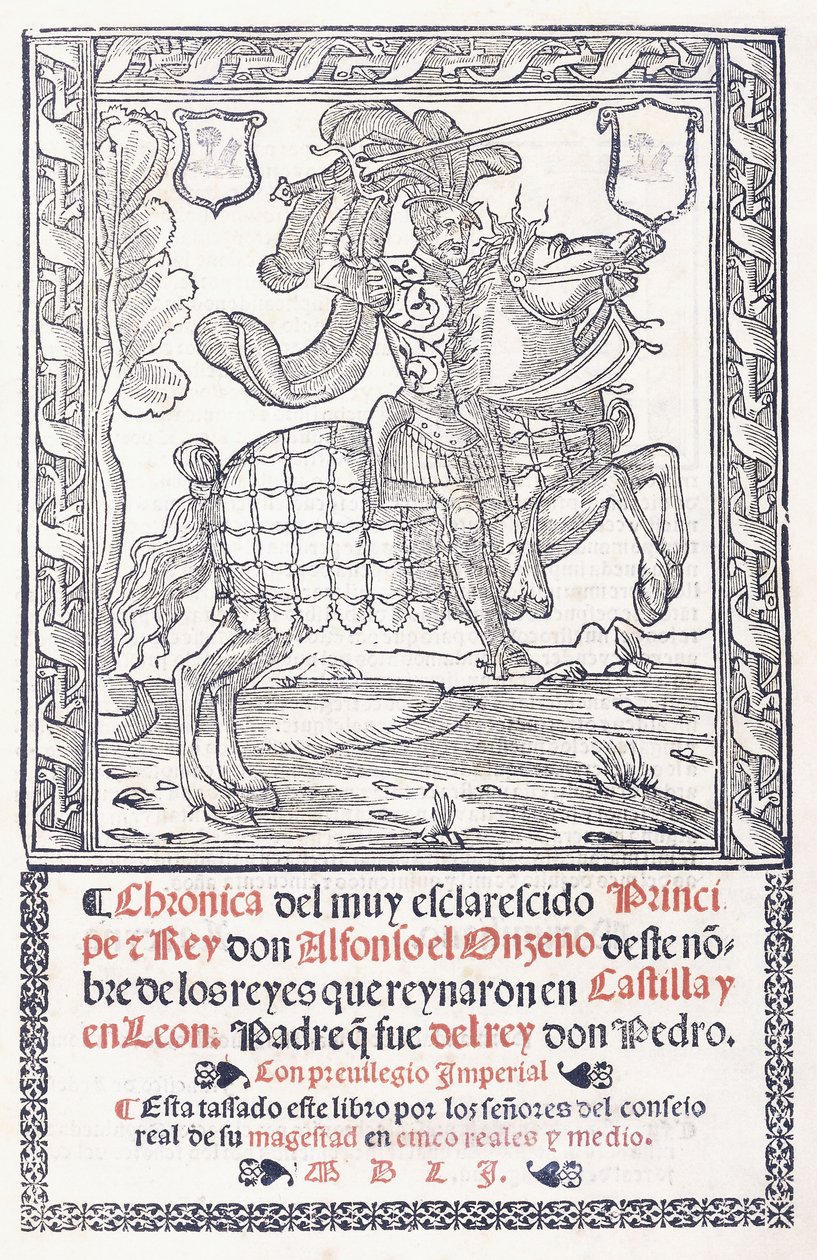 ¶ Chronica del muy esclarescido Princi
pe ⁊ Rey don Alfonso el Onzeno deste nõ-
bre de los reyes que reynaron en Castilla y
en Leon. Padre q̃ fue del rey don Pedro.
Con preuilegio Imperial
¶ Esta tassado este libro por los señores del consejo
real de su magestad en cinco reales y medio.
M D L I.